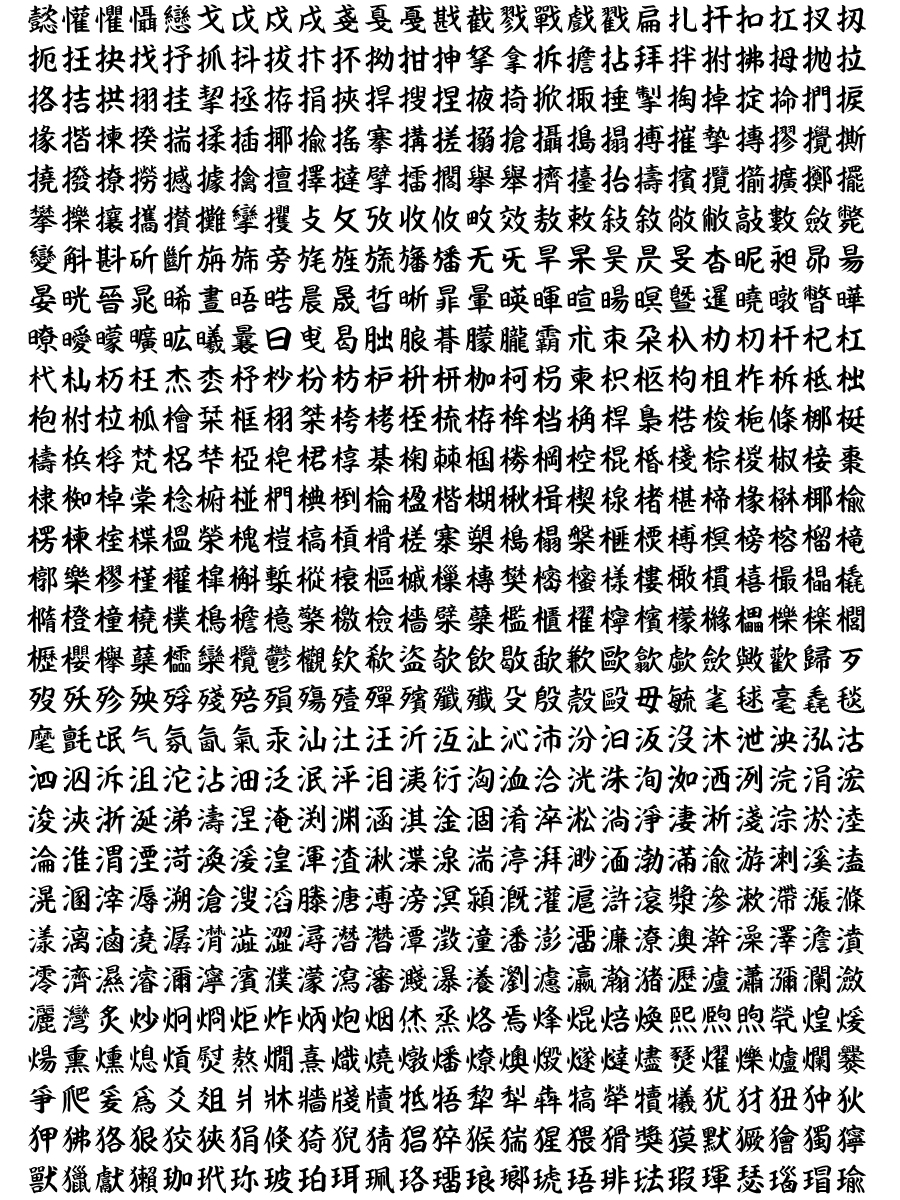 懿懽懼懾戀戈戉戍戌戔戛戞戡截戮戰戲戳扁扎扞扣扛扠扨
扼抂抉找抒抓抖拔抃抔拗拑抻拏拿拆擔拈拜拌拊拂拇抛拉
挌拮拱挧挂挈拯拵捐挾捍搜捏掖掎掀掫捶掣掏掉掟掵捫捩
掾揩揀揆揣揉插揶揄搖搴搆搓搦搶攝搗搨搏摧摯摶摎攪撕
撓撥撩撈撼據擒擅擇撻擘擂擱擧舉擠擡抬擣擯攬擶擴擲擺
攀擽攘攜攅攤攣攫攴攵攷收攸畋效敖敕敍敘敞敝敲數斂斃
變斛斟斫斷旃旆旁旄旌旒旛旙无旡旱杲昊昃旻杳昵昶昴昜
晏晄晉晁晞晝晤晧晨晟晢晰暃暈暎暉暄暘暝曁暹曉暾暼曄
暸曖曚曠昿曦曩曰曳曷朏朖朞朦朧霸朮朿朶杁朸朷杆杞杠
杙杣杤枉杰枩杼杪枌枋枦枡枅枷柯枴柬枳柩枸柤柞柝柢柮
枹柎柆柧檜栞框栩桀桍栲桎梳栫桙档桷桿梟梏梭梔條梛梃
檮梹桴梵梠梺椏梍桾椁棊椈棘椢椦棡椌棍棔棧棕椶椒椄棗
棣椥棹棠棯椨椪椚椣椡棆楹楷楜楸楫楔楾楮椹楴椽楙椰楡
楞楝榁楪榲榮槐榿槁槓榾槎寨槊槝榻槃榧樮榑榠榜榕榴槞
槨樂樛槿權槹槲槧樅榱樞槭樔槫樊樒櫁樣樓橄樌橲樶橸橇
橢橙橦橈樸樢檐檍檠檄檢檣檗蘗檻櫃櫂檸檳檬櫞櫑櫟檪櫚
櫪櫻欅蘖櫺欒欖鬱欟欸欷盜欹飮歇歃歉歐歙歔歛歟歡歸歹
歿殀殄殃殍殘殕殞殤殪殫殯殲殱殳殷殼毆毋毓毟毬毫毳毯
麾氈氓气氛氤氣汞汕汢汪沂沍沚沁沛汾汨汳沒沐泄泱泓沽
泗泅泝沮沱沾沺泛泯泙泪洟衍洶洫洽洸洙洵洳洒洌浣涓浤
浚浹浙涎涕濤涅淹渕淵涵淇淦涸淆淬淞淌淨淒淅淺淙淤淕
淪淮渭湮渮渙湲湟渾渣湫渫湶湍渟湃渺湎渤滿渝游溂溪溘
滉溷滓溽溯滄溲滔滕溏溥滂溟潁漑灌滬滸滾漿滲漱滯漲滌
漾漓滷澆潺潸澁澀潯潛濳潭澂潼潘澎澑濂潦澳澣澡澤澹濆
澪濟濕濬濔濘濱濮濛瀉瀋濺瀑瀁瀏濾瀛瀚潴瀝瀘瀟瀰瀾瀲
灑灣炙炒炯烱炬炸炳炮烟烋烝烙焉烽焜焙煥煕熈煦煢煌煖
煬熏燻熄熕熨熬燗熹熾燒燉燔燎燠燬燧燵燼燹燿爍爐爛爨
爭爬爰爲爻爼爿牀牆牋牘牴牾犂犁犇犒犖犢犧犹犲狃狆狄
狎狒狢狠狡狹狷倏猗猊猜猖猝猴猯猩猥猾獎獏默獗獪獨獰
獸獵獻獺珈玳珎玻珀珥珮珞璢琅瑯琥珸琲琺瑕琿瑟瑙瑁瑜